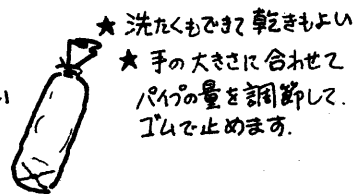 ★ 洗たくもできて乾きもよい
★ 手の大きさに合わせて
パイプの量を調節して.
ゴムで止めます.